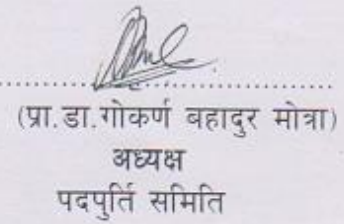 (प्रा.डा.गोकर्ण बहादुर मोत्रा)
अध्यक्ष
पदपुर्ति समिति